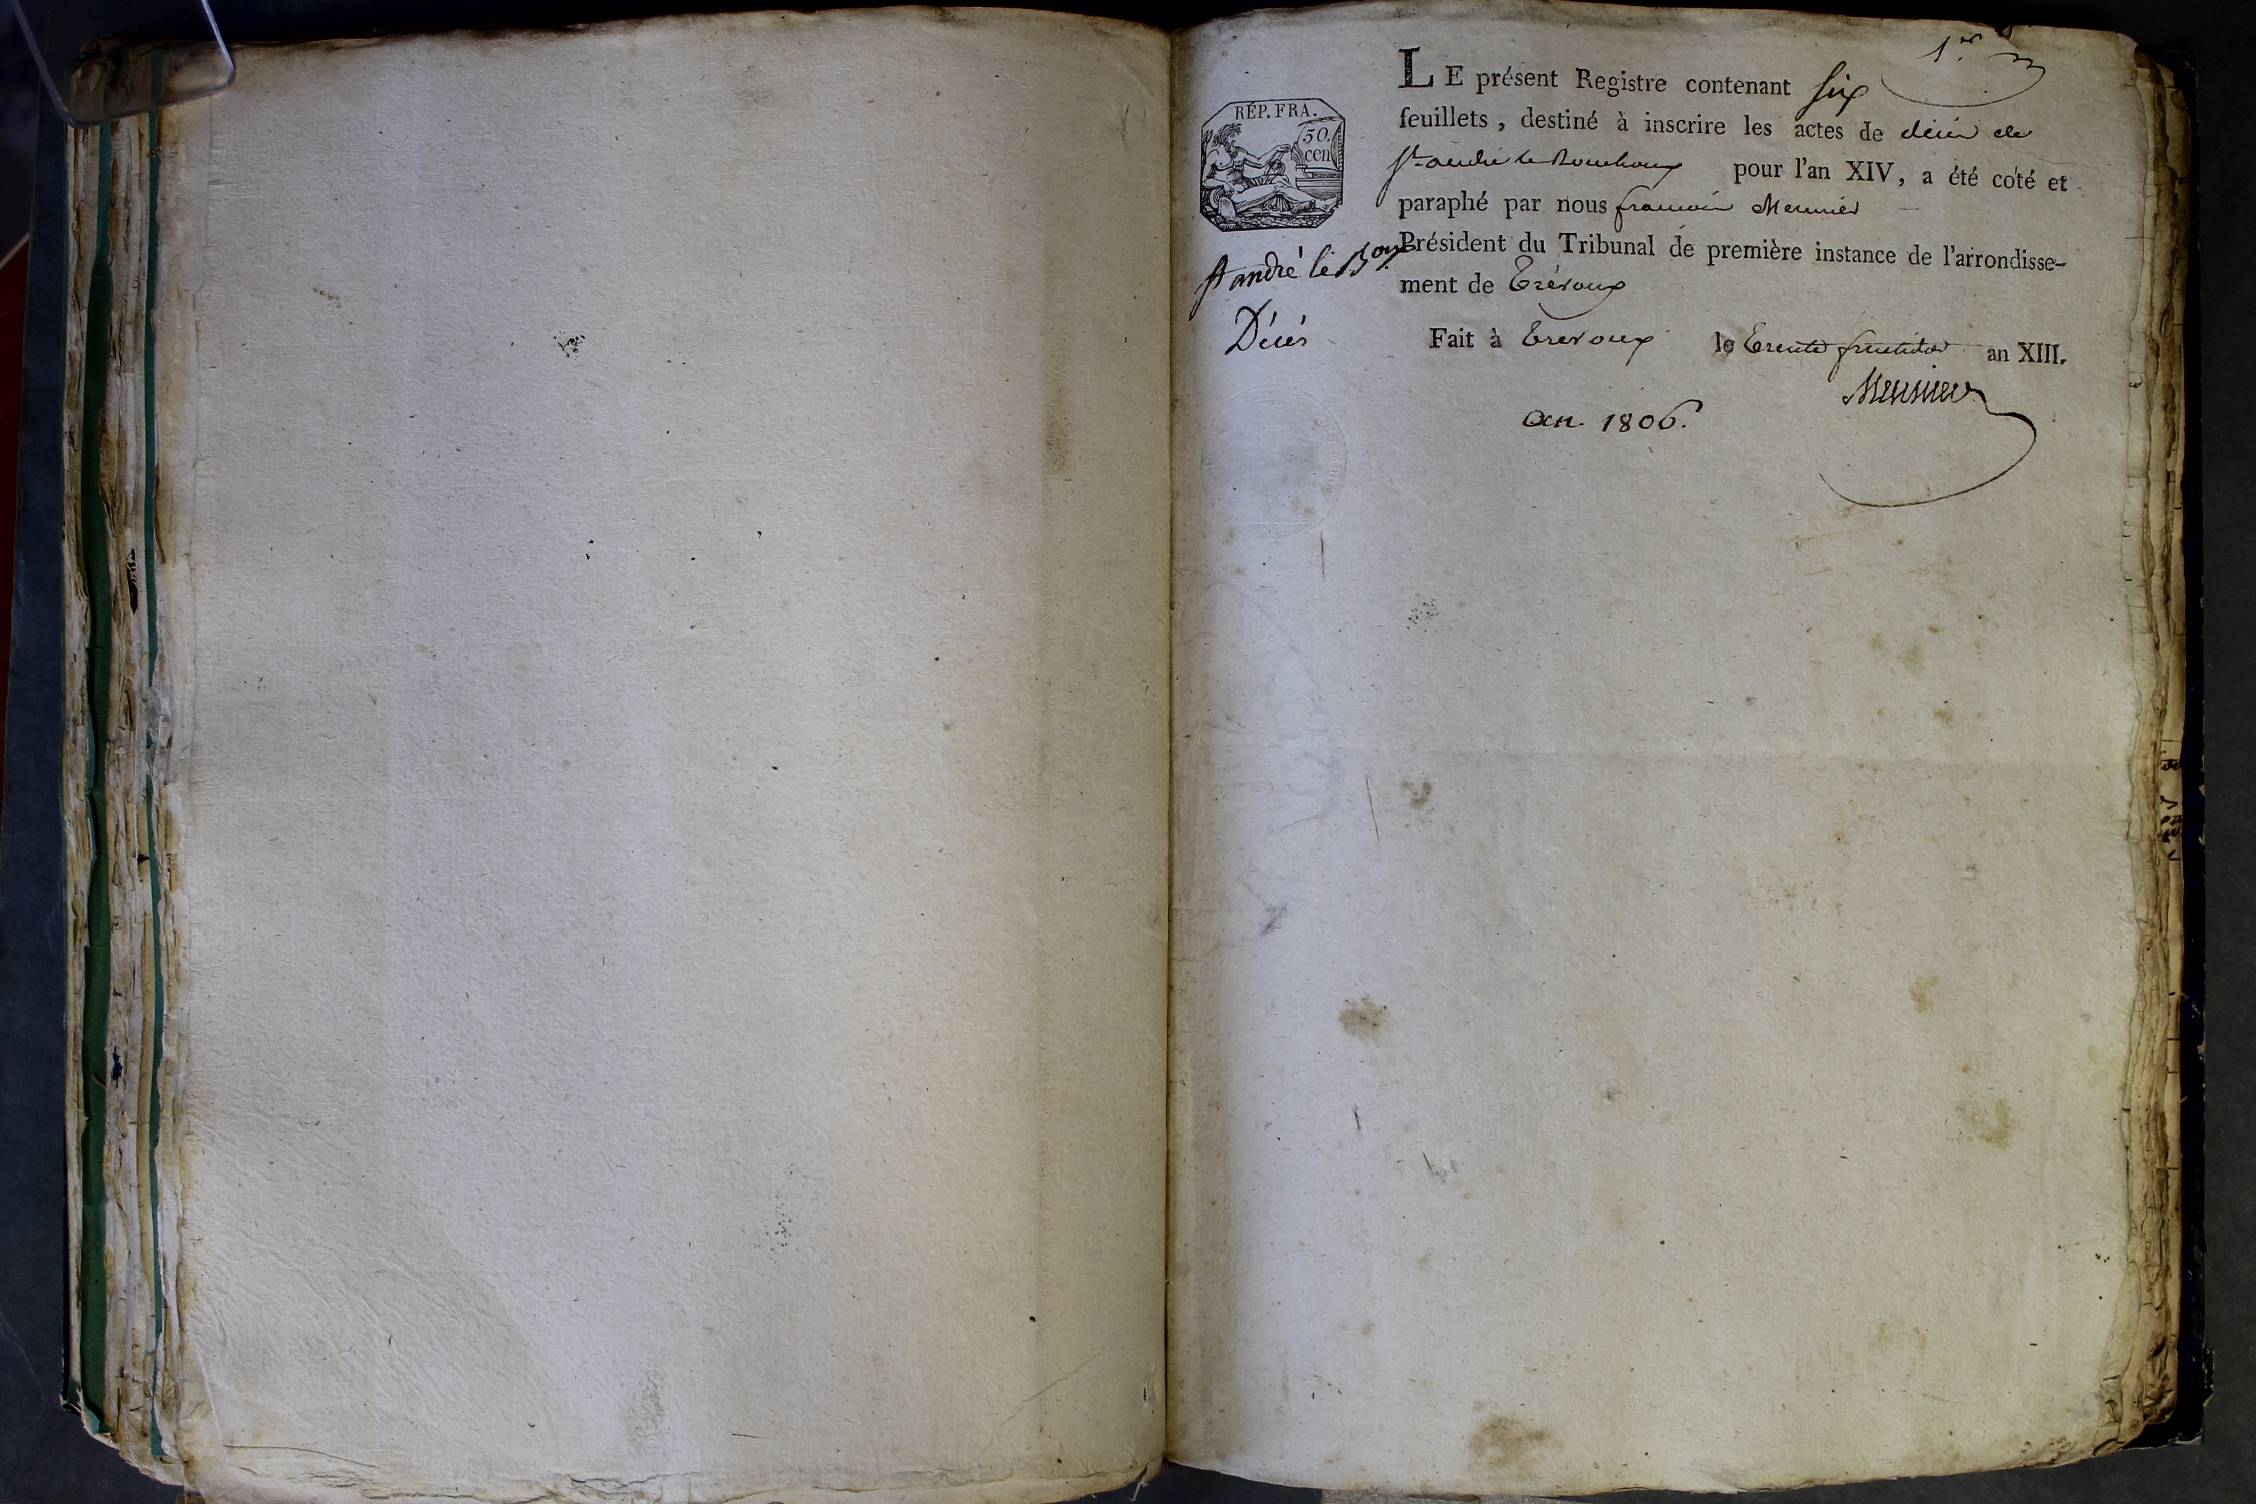 1.er
LE présent Registre contenant six
feuillets, destiné à inscrire les actes de décès de
St. andré le Bouchoux pour l'an XIV, a été coté et
paraphé par nous francois Meunier
Président du Tribunal de première instance de l'arrondisse-
ment de Trévoux
Fait à Trevoux le Trente fructidor an XIII.
Meunier
an. 1806.
RÉP. FRA.
50.
cen
St andré le Boux
Décés